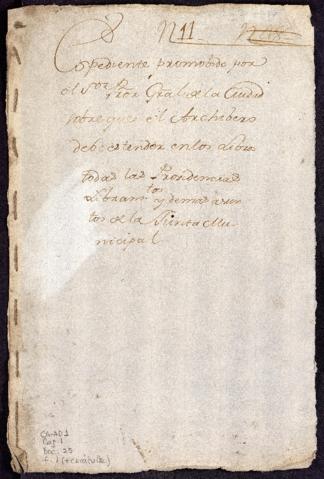 N 11
Expediente promobido por
el Sor Pror Gral de la Ciudad
sobre que el Archibero
debe estender en los libros
todas las Providencias
Libramtos y demas asun
tos de la Junta Mu-
nicipal
CA-AD1
Caj. 1
Doc. 25
f. 1 (+ carátula)